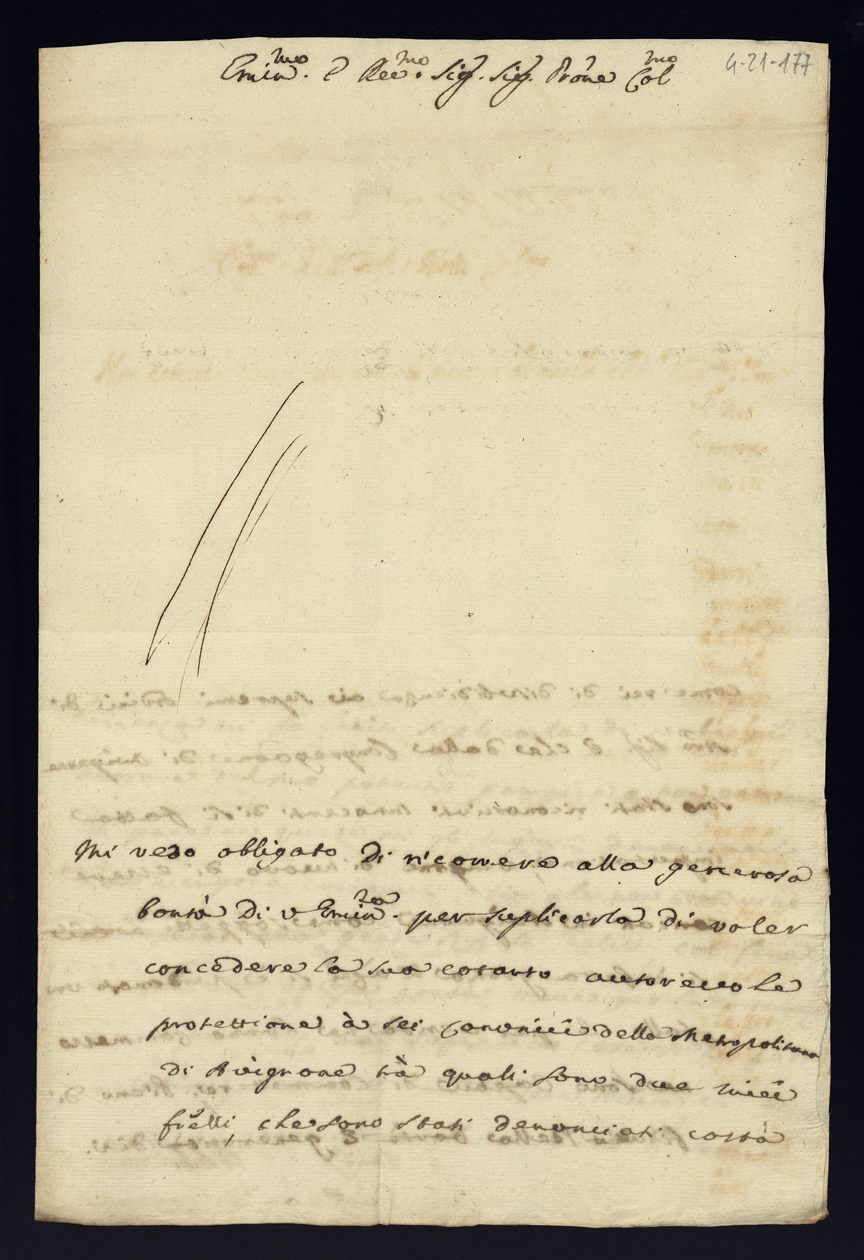 Emin.mo e Re.mo Sig. Sig. Prone Col.mo
4-21-177
Mi vedo obligato di ricorrere alla generosa
bontà di V Emin.za per suplicarla di voler
concedere la sua cotanto autorevole
protettione à sei Canonici della Metropolitana
di Avignone trà quali sono due miei
frelli, che sono stati denonciati costà